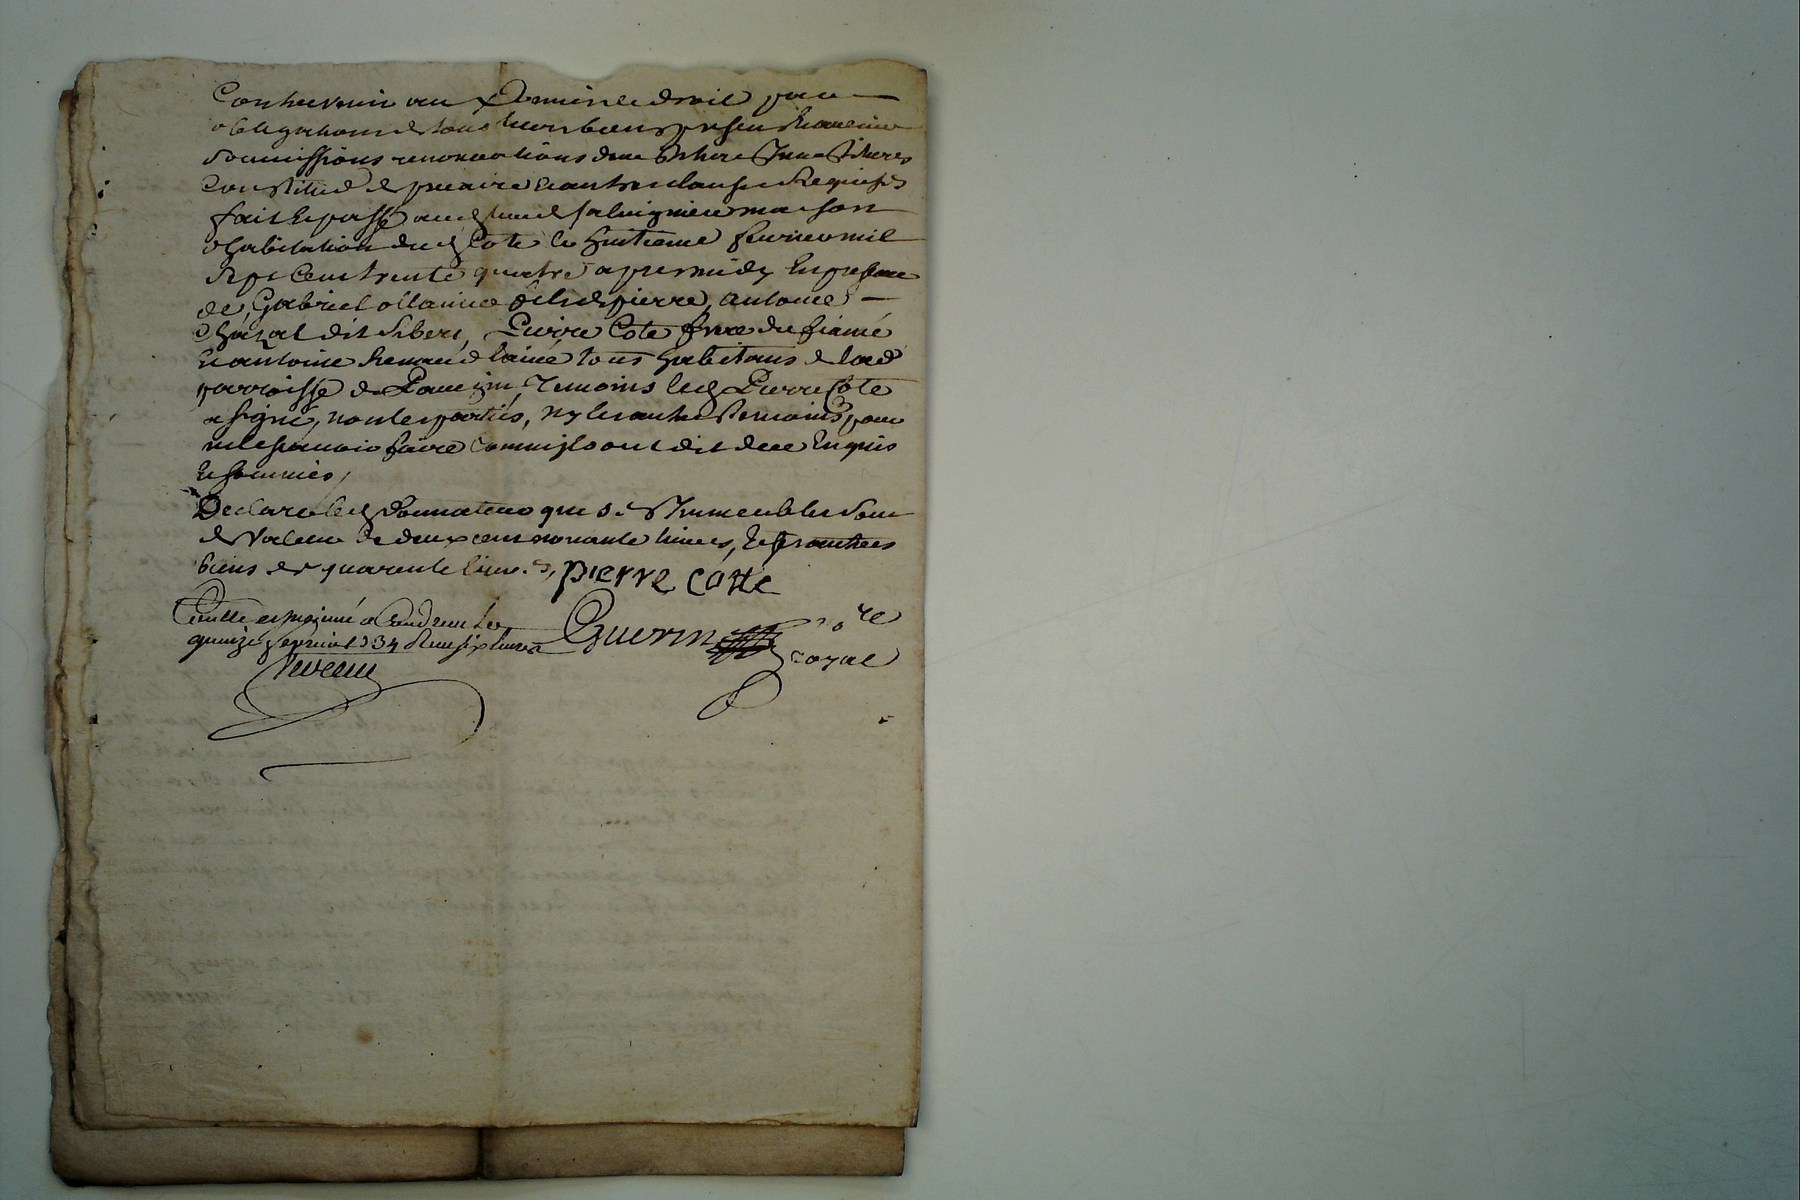 Contrevenir au Domin le droit pour
obligations de tous leurs biens presen Et avenir
soumissions renonciations
Constitué de precaire Et autres clauses Requises
fait Et passé au lieu de maison
d habitation dud Cote le huitieme feurier mil
Sept Cent trente quatre apres midy En presence
de Gabriel ollanier fils de pierre, antoine
Chazal dit siberi, Pierre Cote frere du fiancé
Et antoine Renaud lainé tous habitans de lad
parroisse de temoins led Pierre Cote
a signé, non les parties, ny les autres temoins pour
ne le scauoir faire comm ils ont dit de ce Enquis
Et sommés,
Declare led donnateur que ses Immeubles sont
de Valeur de deux cent nonante liures, Et ses autres
biens de quarente liures, pierre cotte
Controllé et insinué a le
quinze feurier 1734 Reçu six liures
Guerin no.re
royal